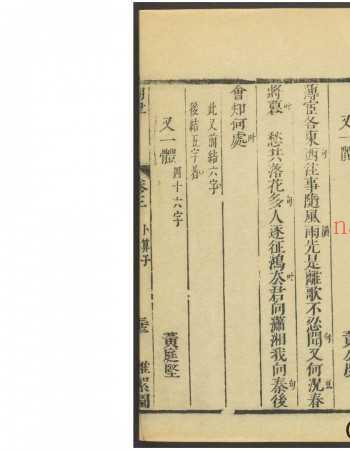 又一體
薄宦各東西句往事隨風雨韻先是離歌不忍聞句又何況豆春
將暮叶 愁共落花多句人逐征鴻去叶君向瀟湘我向秦句後
會知何處叶
此又前結六字
後結五字者
又一體 四十六字 黃庭堅
卷三 卜算子